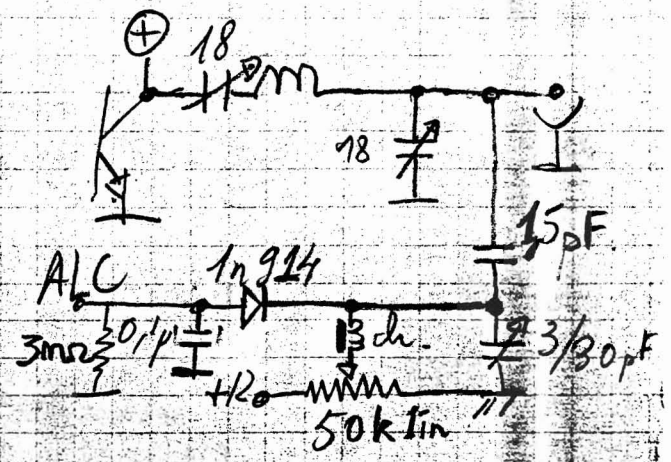 +
18
18
1,5pF.
ALC
1n914
3mΩ
0,1µ
3/30pF
+12
50k lin